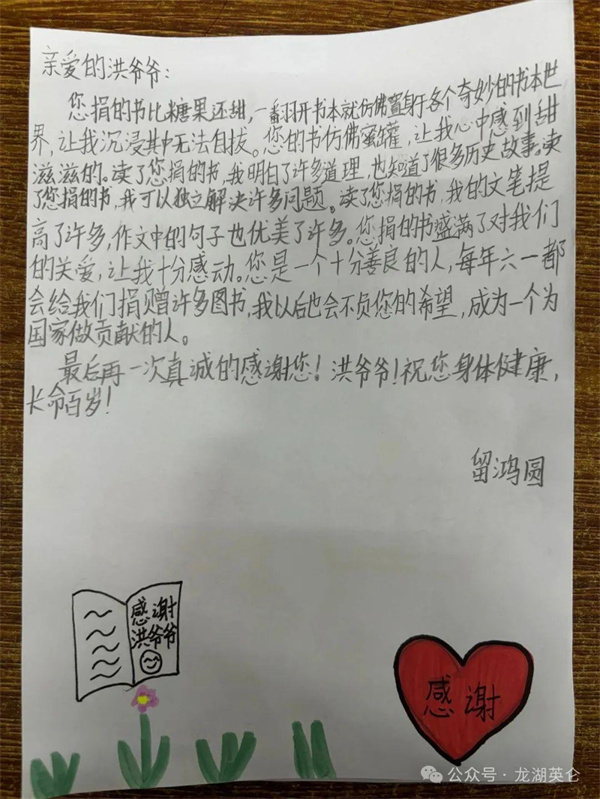 亲爱的洪爷爷：
您捐的书比糖果还甜，一翻开书本就仿佛置身于各个奇妙的书本世
界，让我沉浸其中无法自拔。您的书仿佛蜜罐，让我心中感到甜
滋滋的。读了您捐的书，我明白了许多道理，也知道了很多历史故事。读
了您捐的书，我可以独立解决许多问题。读了您捐的书，我的文笔提
高了许多，作文中的句子也优美了许多。您捐的书盛满了对我们
的关爱，让我十分感动。您是一个十分善良的人，每年六一都
会给我们捐赠许多图书，我以后也会不负您的希望，成为一个为
国家做贡献的人。
最后再一次真诚的感谢您！洪爷爷！祝您身体健康，
长命百岁！
留鸿圆
感谢
洪爷爷
感谢
公众号·龙湖英仑